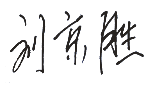 刘京胜